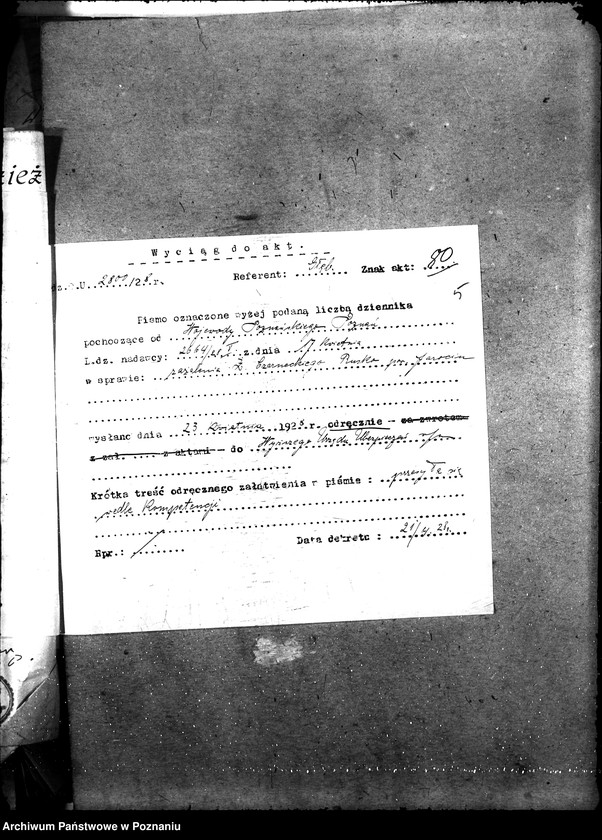 zież
Wyciąg do akt.
z. U. 2807/28 r.
Referent: Znak akt: 80
5
Pismo oznaczone wyżej podaną liczbą dziennika
pochodzące od Wojewody Poznańskiego Poznań
L.dz. nadawcy: 2664/28 I z dnia 17 kwietnia
w sprawie: zażalenia Czarneckiego Rusko Jarocin
wysłano dnia 23 kwietnia 1928 r. odręcznie - za zwrotem
z zał. z aktami - do Wyższego Urzędu Ubezpieczeń
Krótka treść odręcznego załatwienia w piśmie : przesyła się
wedle kompetencji
Rpr.: Data dekretu : 21/4. 28.
Archiwum Państwowe w Poznaniu